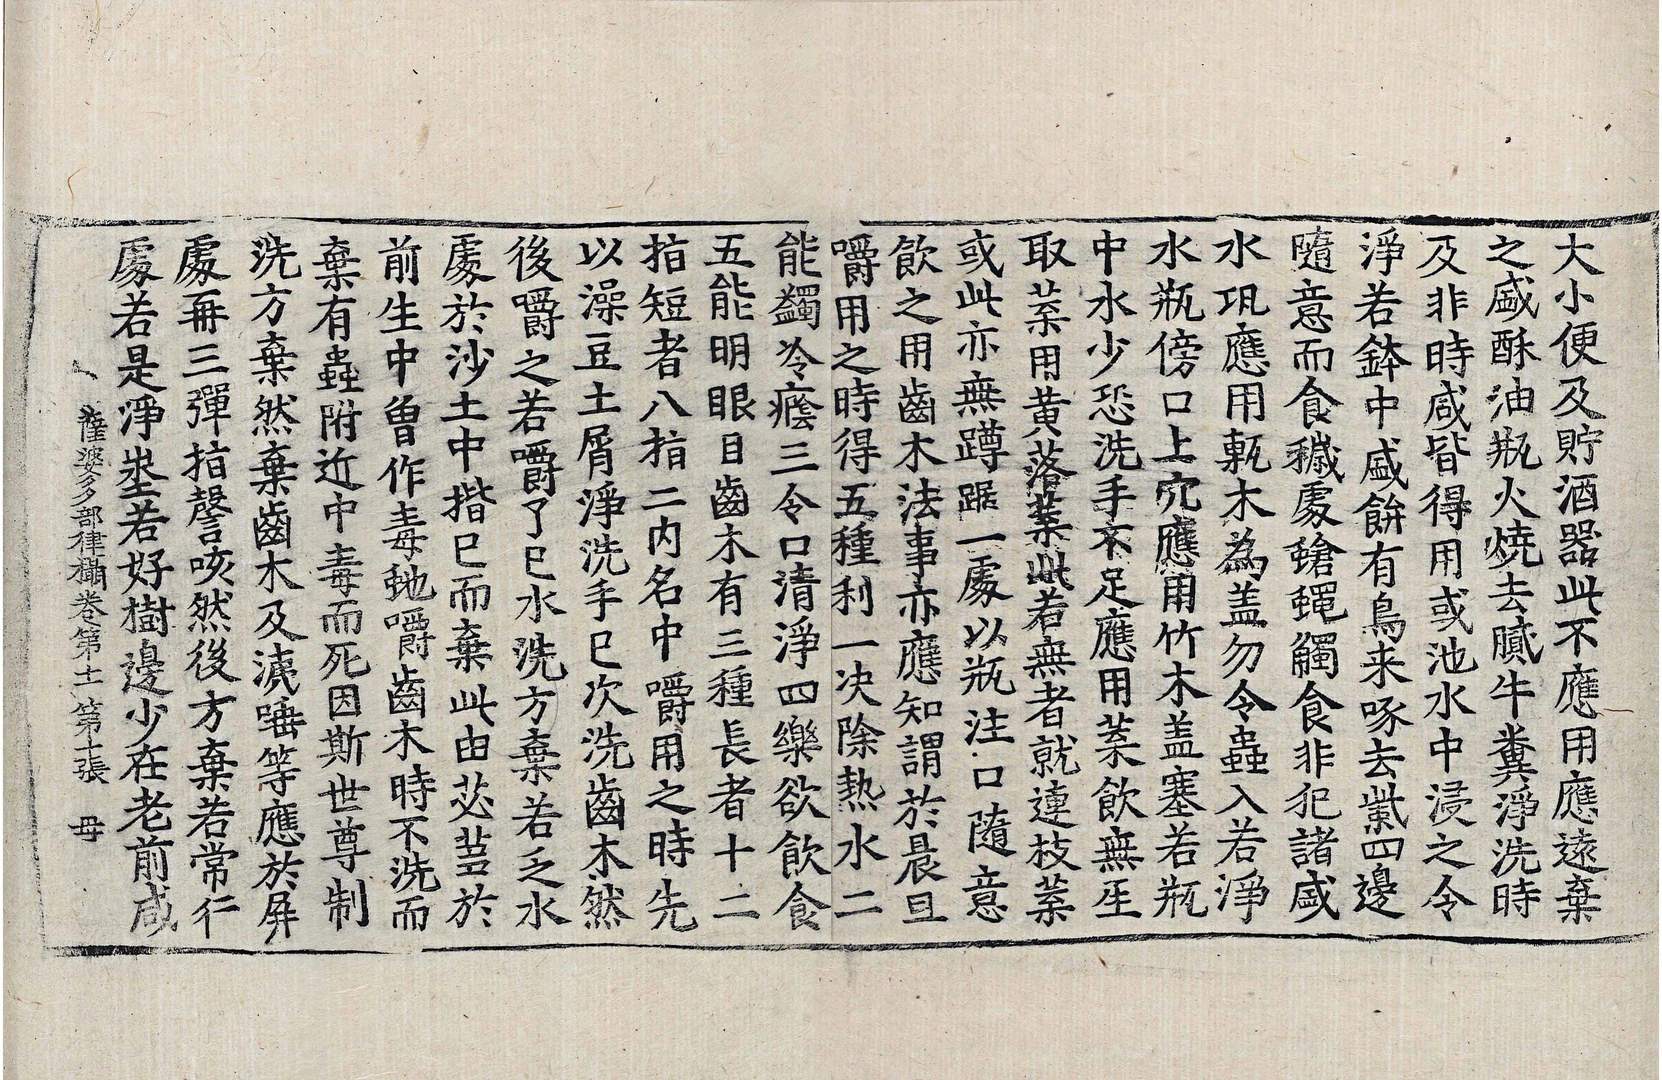 大小便及貯酒器此不應用應遠棄
之盛酥油瓶火燒去膩牛糞淨洗時
及非時咸皆得用或池水中浸之令
淨若鉢中盛餅有鳥来啄去觜四邊
隨意而食穢處䗶蠅觸食非犯諸盛
水瓨應用㼾木為盖勿令蟲入若淨
水瓶傍口上穴應用竹木盖塞若瓶
中水少恐洗手不足應用葉飲無𤯔
取葉用黄落葉此若無者就連枝葉
或此亦無蹲踞一處以瓶注口隨意
飲之用齒木法事亦應知謂於晨旦
嚼用之時得五種利一决除熱水二
能蠲冷癊三令口清淨四樂欲飲食
五能明眼目齒木有三種長者十二
指短者八指二内名中嚼用之時先
以澡豆土屑淨洗手已次洗齒木然
後嚼之若嚼了已水洗方棄若乏水
處於沙土中揩已而棄此由苾芻於
前生中曾作毒虵嚼齒木時不洗而
棄有蟲附近中毒而死因斯世尊制
洗方棄然棄齒木及洟唾等應於屏
處再三彈指謦咳然後方棄若常行
處若是淨㘴若好樹邊少在老前咸
薩婆多部律攝卷第十一 第十張 母